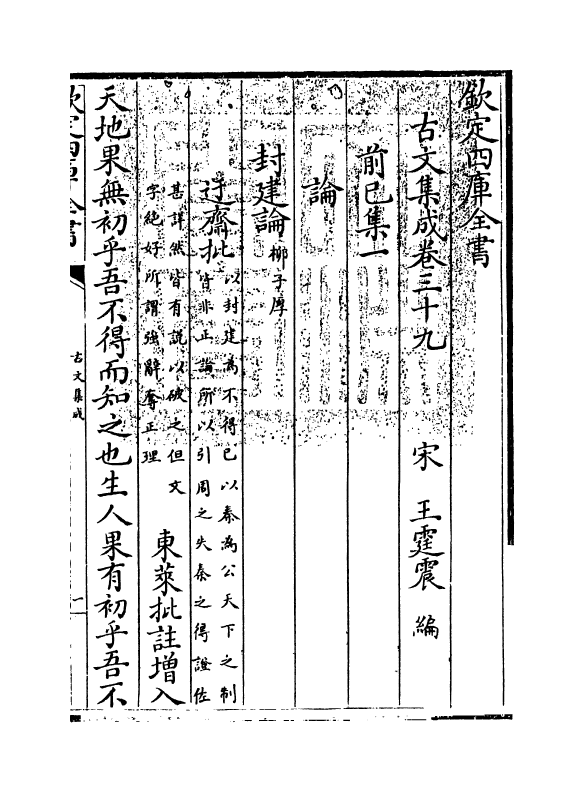 欽定四庫全書
古文集成卷三十九　宋　王霆震　編
前已集一
論
封建論 柳子厚
迂齋批 以封建為不得已以秦為公天下之制
皆非正論所以引周之失秦之得證佐
甚詳然皆有說以破之但文
字絶好所謂強辭奪正理　東萊批註增入
天地果無初乎吾不得而知之也生人果有初乎吾不
欽定四庫全書
古文集成
一